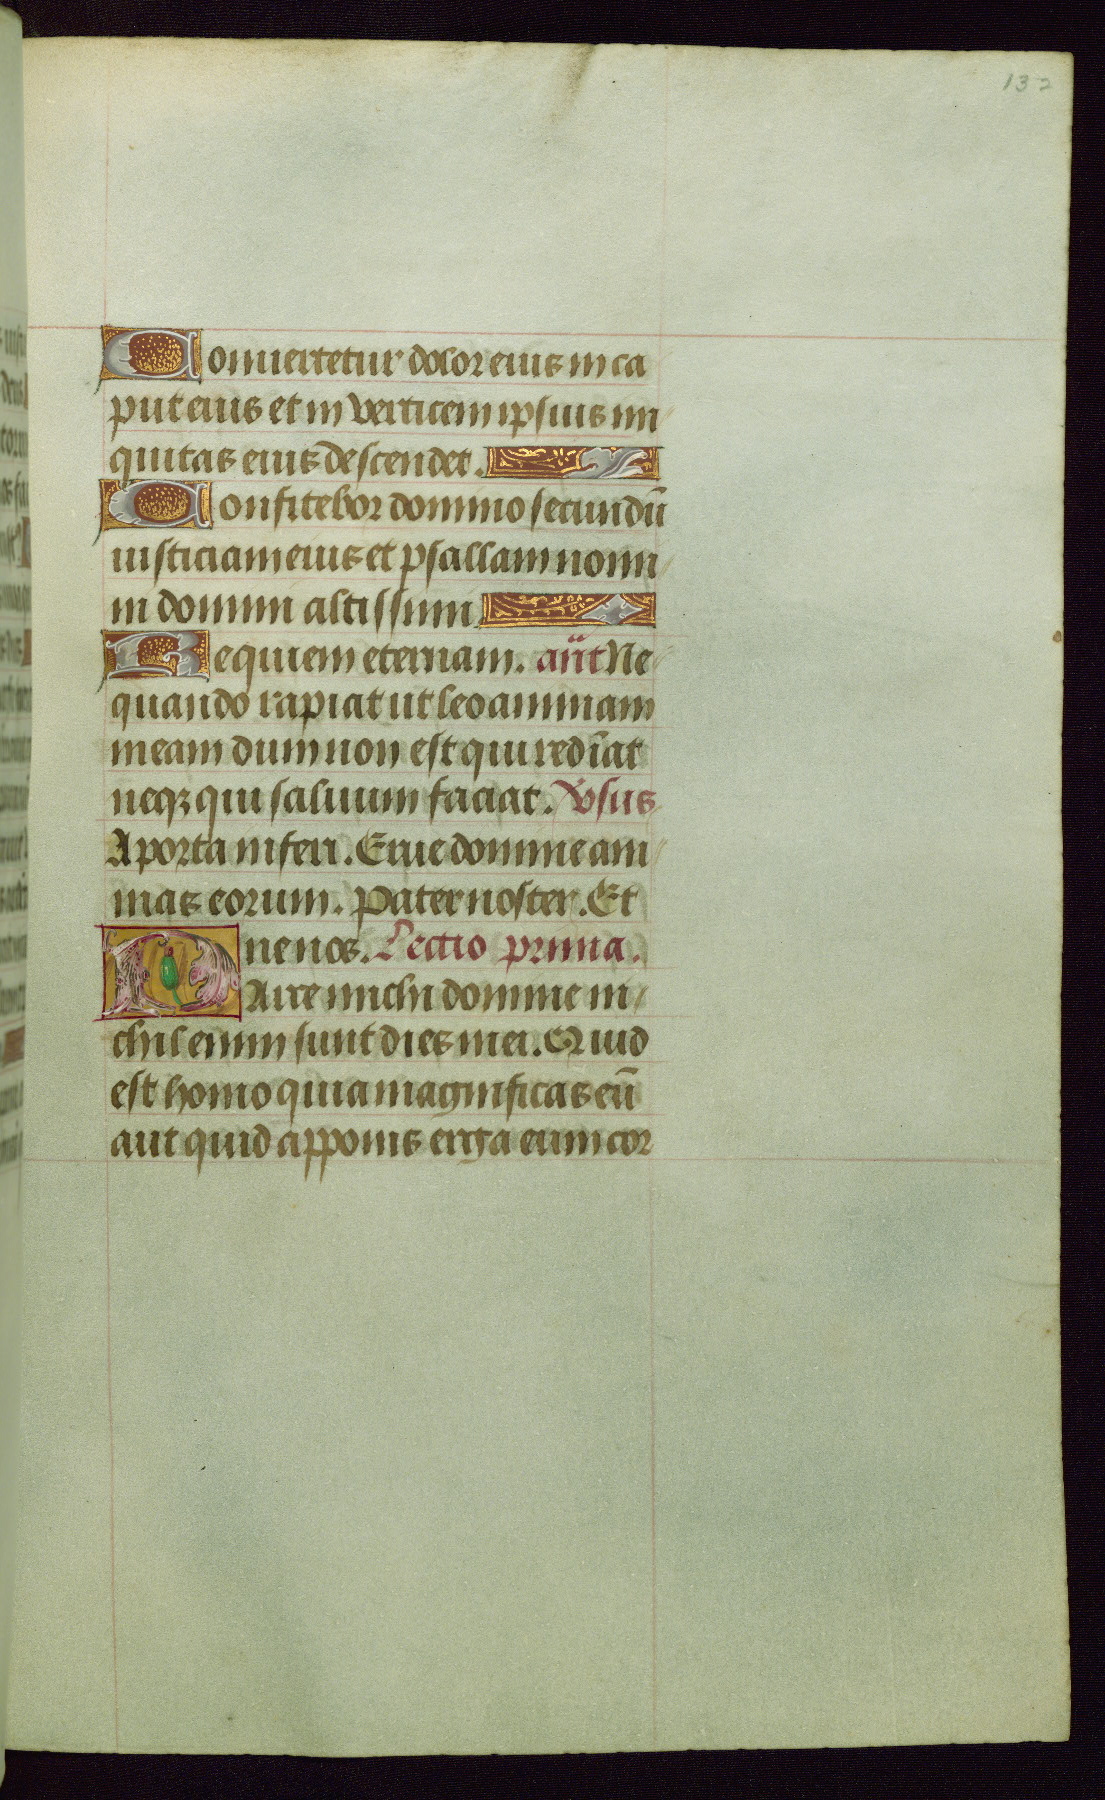 132
Conuertetur dolor eius in ca
put eius et in verticem ipsius ini
quitas eius descendet.
Confitebor domino secundū
iusticiam eius et psallam nomi
ni domini altissimi.
Requiem eternam. añt Ne
quando rapiat ut leo animam
meam dum non est qui redīat
neqȝ qui saluum faciat. Vsus
A porta inferi. Erue domine ani
mas eorum. Pater noster. Et
ne nos. Lectio prima.
PArce michi domine ni
chil enim sunt dies mei. Quid
est homo quia magnificas eū
aut quid apponis erga eum cor